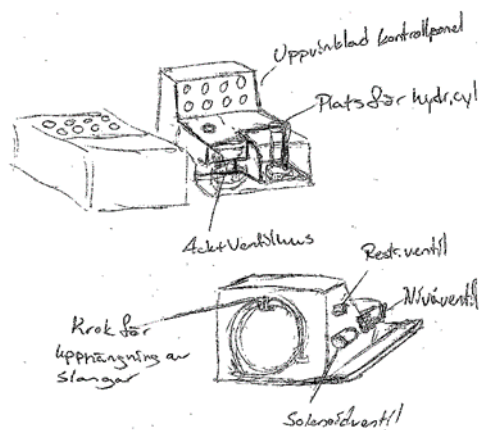 Uppvinklad kontrollpanel
Plats för hydr.cyl
4 ckt Ventilhus
Restr.ventil
Nivåventil
Krok för
upphängning av
slangar
Solenoidventil